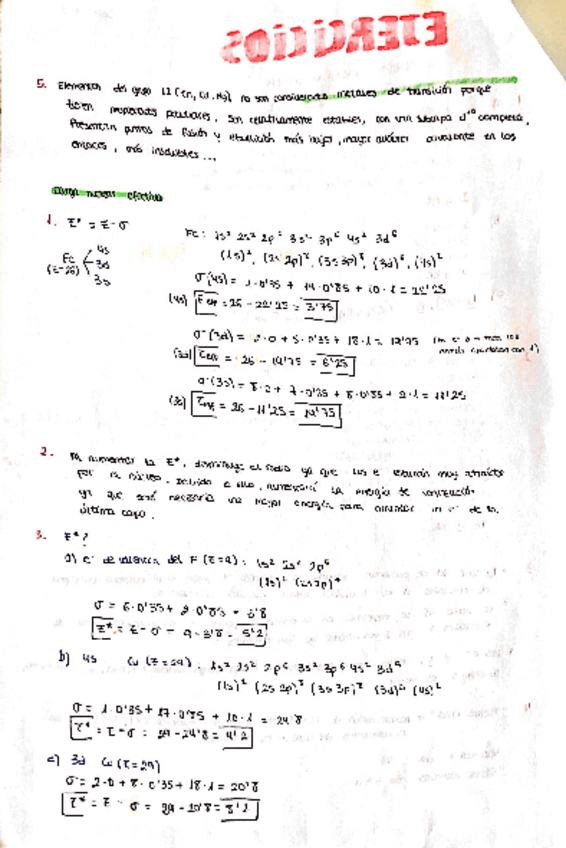 EJERCICIOS
5. Elementos del grupo 12 (Zn, Cd, Hg), no son considerados metales de transición porque
tienen propiedades peculiares, son relativamente estables, con una subcapa d¹⁰ completa,
Presentan puntos de fusión y ebullición más bajos, mayor carácter covalente en los
enlaces, más insolubles...
carga nuclear efectiva
1. Z* = Z-σ
Fe: 1s² 2s² 2p⁶ 3s² 3p⁶ 4s² 3d⁶
(1s)², (2s 2p)⁸, (3s3p)⁸, (3d)⁶, (4s)²
Fe (Z=26) 4s 3d 3s
σ(4s) = 1·0'35 + 14·0'85 + 10·1 = 22'25
(4s) Zeff = 26 - 22'25 = 3'75
σ(3d) = 5·0'35 + 18·1 = 19'75
(3d) Zeff = 26 - 19'75 = 6'25
σ(3s) = 8·2 + 7·0'35 + 8·0'85 + 2·1 = 11'25
(3s) Zeff = 26 - 11'25 = 14'75
2. Al aumentar la Z*, disminuye el radio ya que los e⁻ estarán muy atraídos
por el núcleo. Debido a ello, aumentará la energía de ionización
ya que será necesaria una mayor energía para arrancar un e⁻ de la
última capa.
3. Z*?
a) e⁻ de valencia del F (Z=9): 1s² 2s² 2p⁵
(1s)² (2s2p)⁷
σ = 6·0'35 + 2·0'85 = 3'8
Z* = Z - σ = 9 - 3'8 = 5'2
b) 4s Cu (Z=29): 1s² 2s² 2p⁶ 3s² 3p⁶ 4s² 3d⁹
(1s)² (2s 2p)⁸ (3s 3p)⁸ (3d)⁹ (4s)²
σ = 1·0'35 + 17·0'85 + 10·1 = 24'8
Z* = Z - σ = 29 - 24'8 = 4'2
c) 3d Cu (Z=29)
σ = 2·0 + 8·0'35 + 18·1 = 20'8
Z* = Z - σ = 29 - 20'8 = 8'2